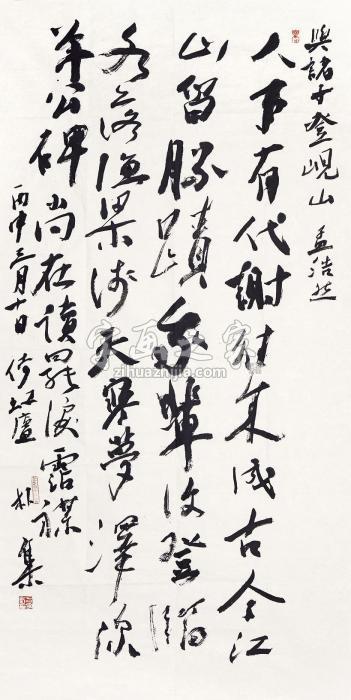 與諸子登峴山 孟浩然
人事有代謝往来成古今江
山留勝蹟我輩復登臨
水落漁梁淺天寒夢澤深
羊公碑尚在讀罷淚霑襟
丙申三月十日 廬 集
字画之家
zihuazhijia.com